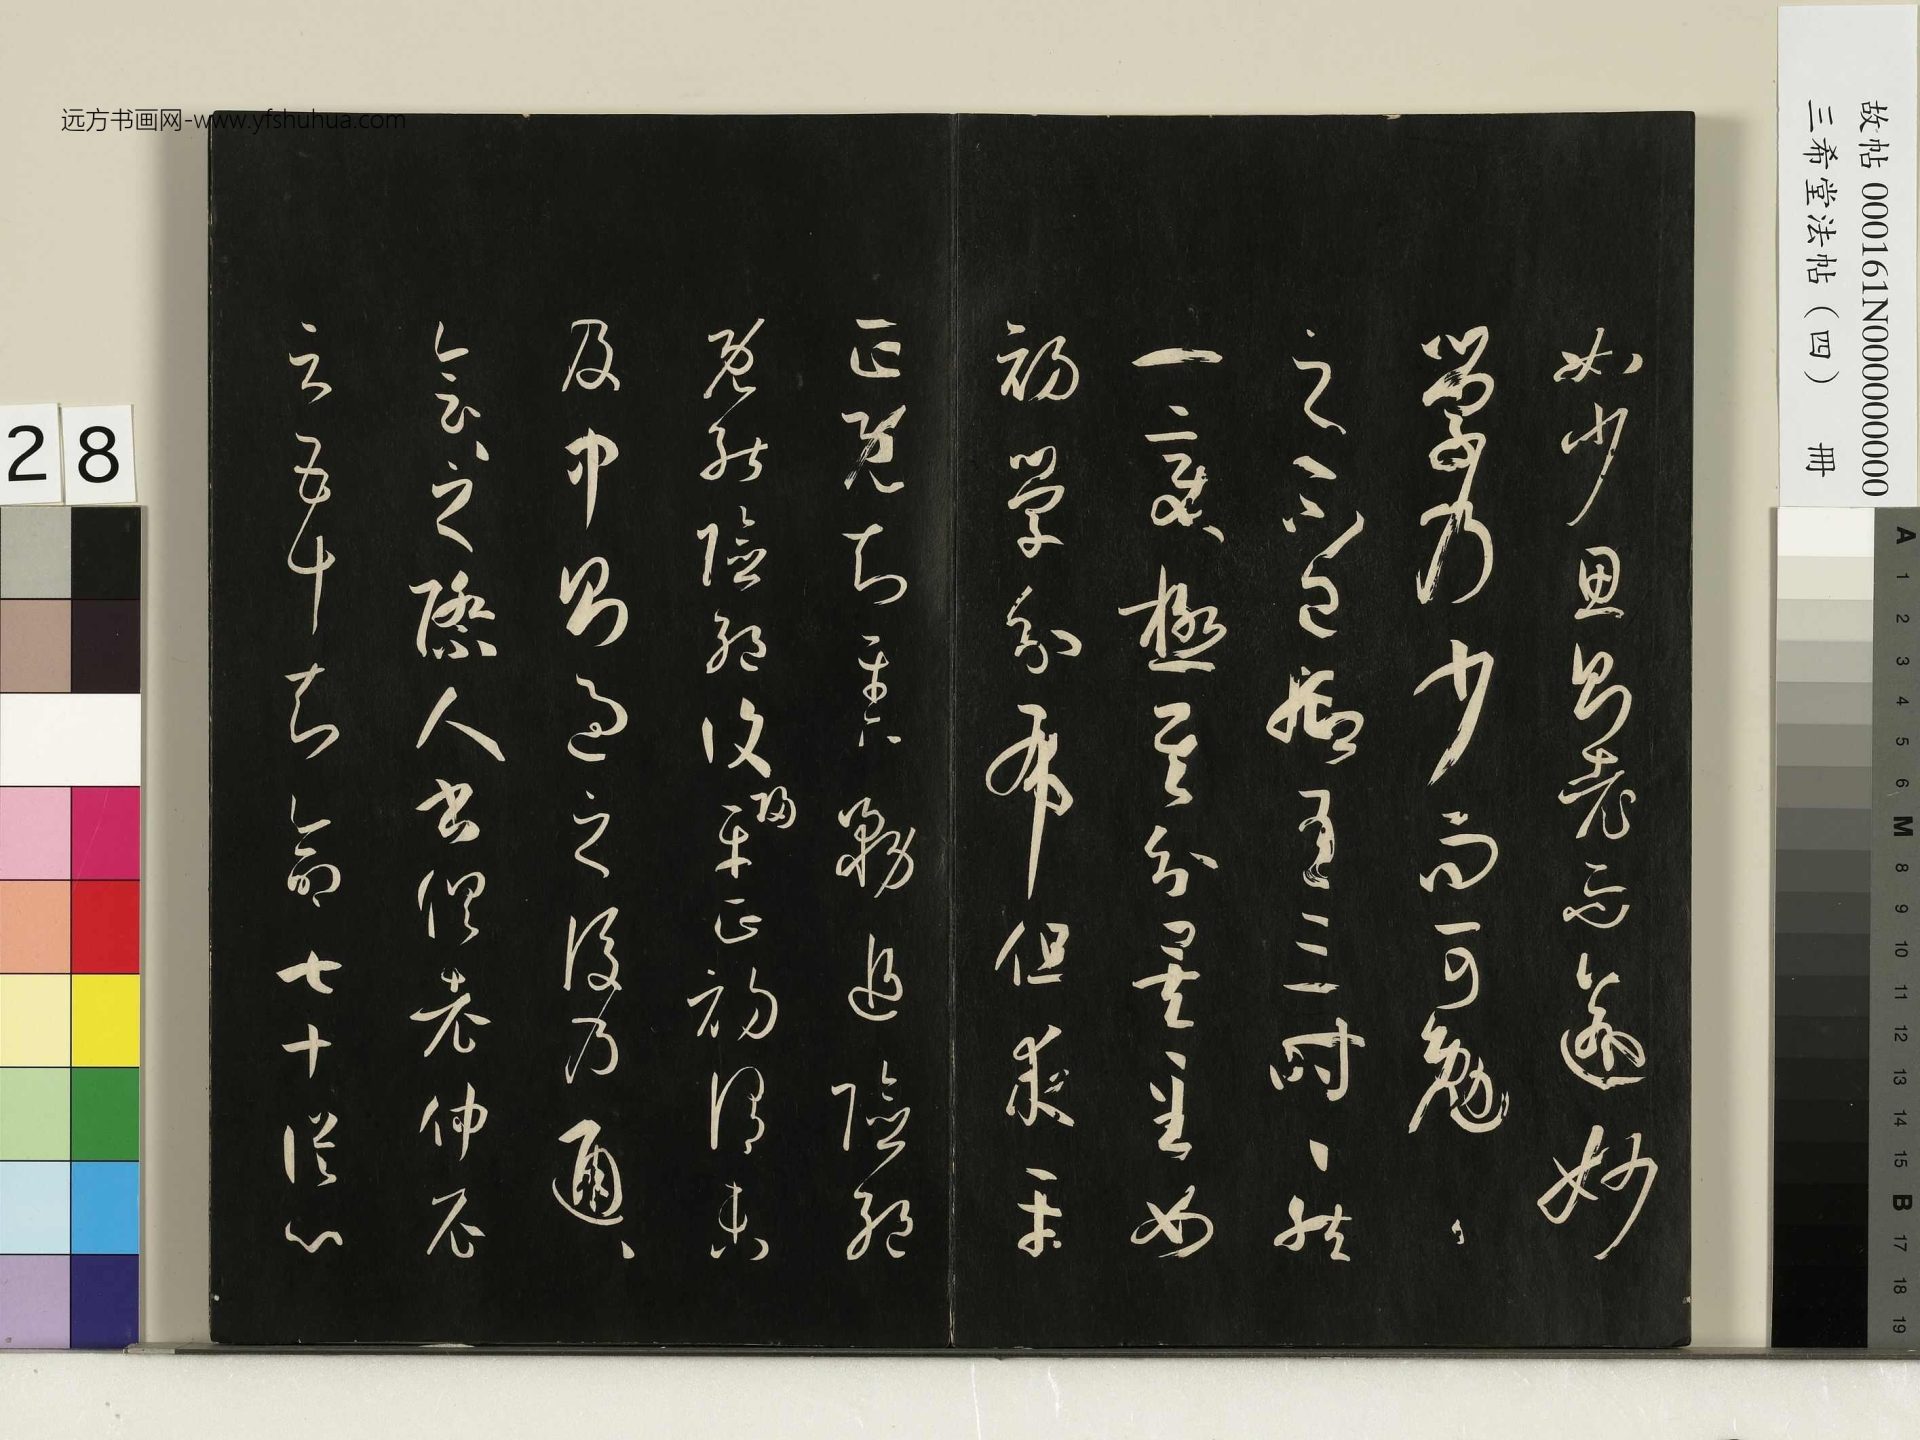 如少思則老而逾妙
學乃少而可勉〻
之不已抑有三時〻然
一變極其分矣至如
初學分布但求平
正既知平正務追險絕
既能險絕復歸平正初謂未
及中則過之後乃通〻
會〻之際人書俱老仲尼
云五十知命七十從心
远方书画网-www.yfshuhua.com
故帖 000161N000000000
三希堂法帖（四） 冊
28
A 1 2 3 4 5 6 M 8 9 10 11 12 13 14 15 B 17 18 19